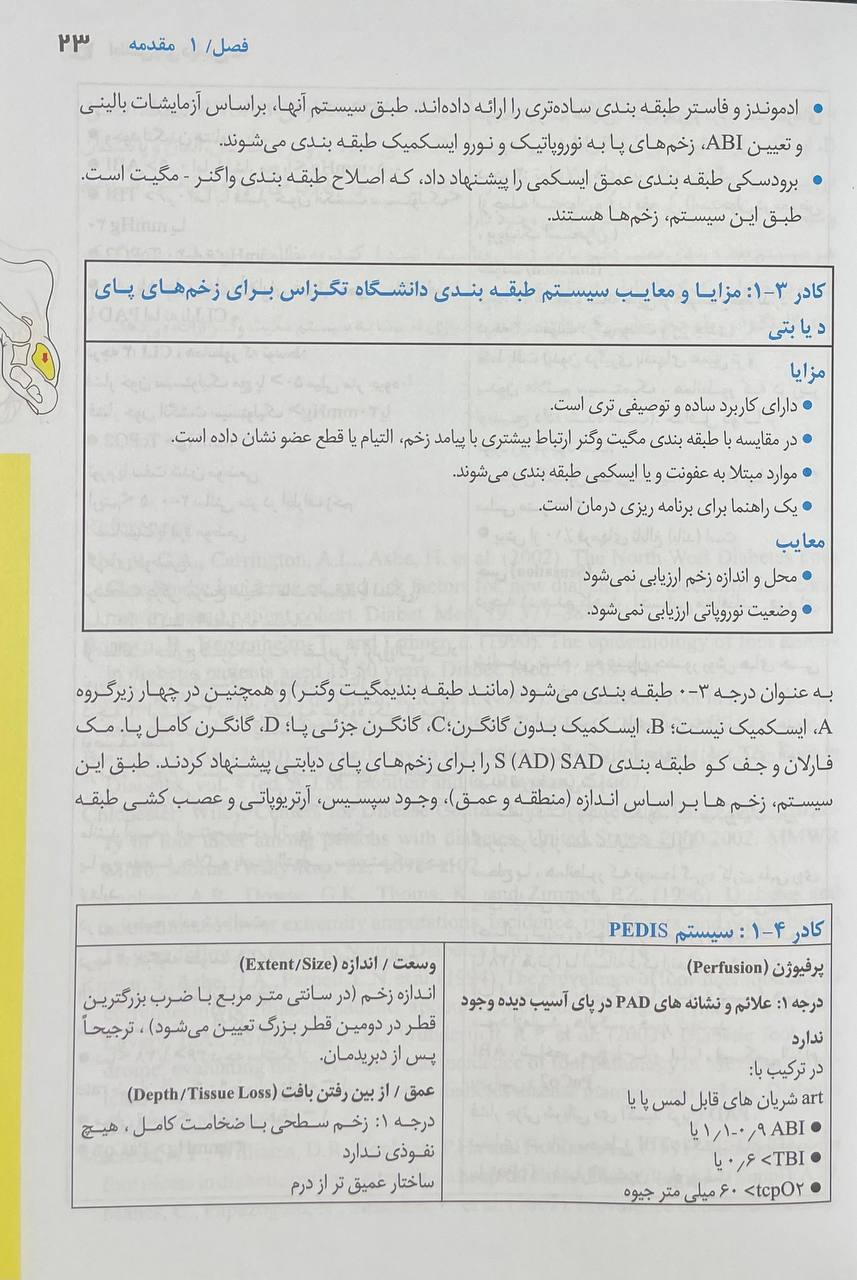 فصل/ ۱ مقدمه ۲۳
• ادموندز و فاستر طبقه بندی ساده‌تری را ارائه داده‌اند. طبق سیستم آنها، براساس آزمایشات بالینی
و تعیین ABI، زخم‌های پا به نوروپاتیک و نورو ایسکمیک طبقه بندی می‌شوند.
• برودسکی طبقه بندی عمق ایسکمی را پیشنهاد داد، که اصلاح طبقه بندی واگنر - مگیت است.
طبق این سیستم، زخم‌ها هستند.
کادر ۳-۱: مزایا و معایب سیستم طبقه بندی دانشگاه تگزاس برای زخم‌های پای
دیابتی
مزایا
• دارای کاربرد ساده و توصیفی تری است.
• در مقایسه با طبقه بندی مگیت وگنر ارتباط بیشتری با پیامد زخم، التیام یا قطع عضو نشان داده است.
• موارد مبتلا به عفونت و یا ایسکمی طبقه بندی می‌شوند.
• یک راهنما برای برنامه ریزی درمان است.
معایب
• محل و اندازه زخم ارزیابی نمی‌شود
• وضعیت نوروپاتی ارزیابی نمی‌شود.
به عنوان درجه ۳-۰ طبقه بندی می‌شود (مانند طبقه بندیمگیت وگنر) و همچنین در چهار زیرگروه
A، ایسکمیک نیست؛ B، ایسکمیک بدون گانگرن؛C، گانگرن جزئی پا؛ D، گانگرن کامل پا. مک
فارلان و جف کو طبقه بندی S (AD) SAD را برای زخم‌های پای دیابتی پیشنهاد کردند. طبق این
سیستم، زخم ها بر اساس اندازه (منطقه و عمق)، وجود سپسیس، آرتریوپاتی و عصب کشی طبقه
کادر ۴-۱ : سیستم PEDIS
پرفیوژن (Perfusion)
درجه ۱: علائم و نشانه های PAD در پای آسیب دیده وجود
ندارد
در ترکیب با:
art شریان های قابل لمس پا یا
• ABI ۰/۹-۱/۱ یا
• TBI> ۰/۶ یا
• tcpO۲> ۶۰ میلی متر جیوه
وسعت / اندازه (Extent/Size)
اندازه زخم (در سانتی متر مربع با ضرب بزرگترین
قطر در دومین قطر بزرگ تعیین می‌شود) ، ترجیحاً
پس از دبریدمان.
عمق / از بین رفتن بافت (Depth/Tissue Loss)
درجه ۱: زخم سطحی با ضخامت کامل ، هیچ
نفوذی ندارد
ساختار عمیق تر از درم